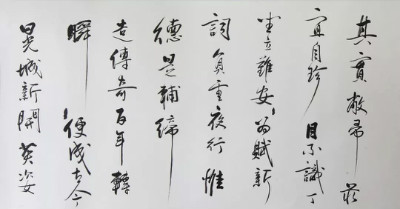 其實敝帚
宜自珍 目不識丁
坐立難安 為賦新
詞 負重夜行 惟
德是輔 締
造傳奇 百年轉
瞬 便成古今
晃城新開 英姿